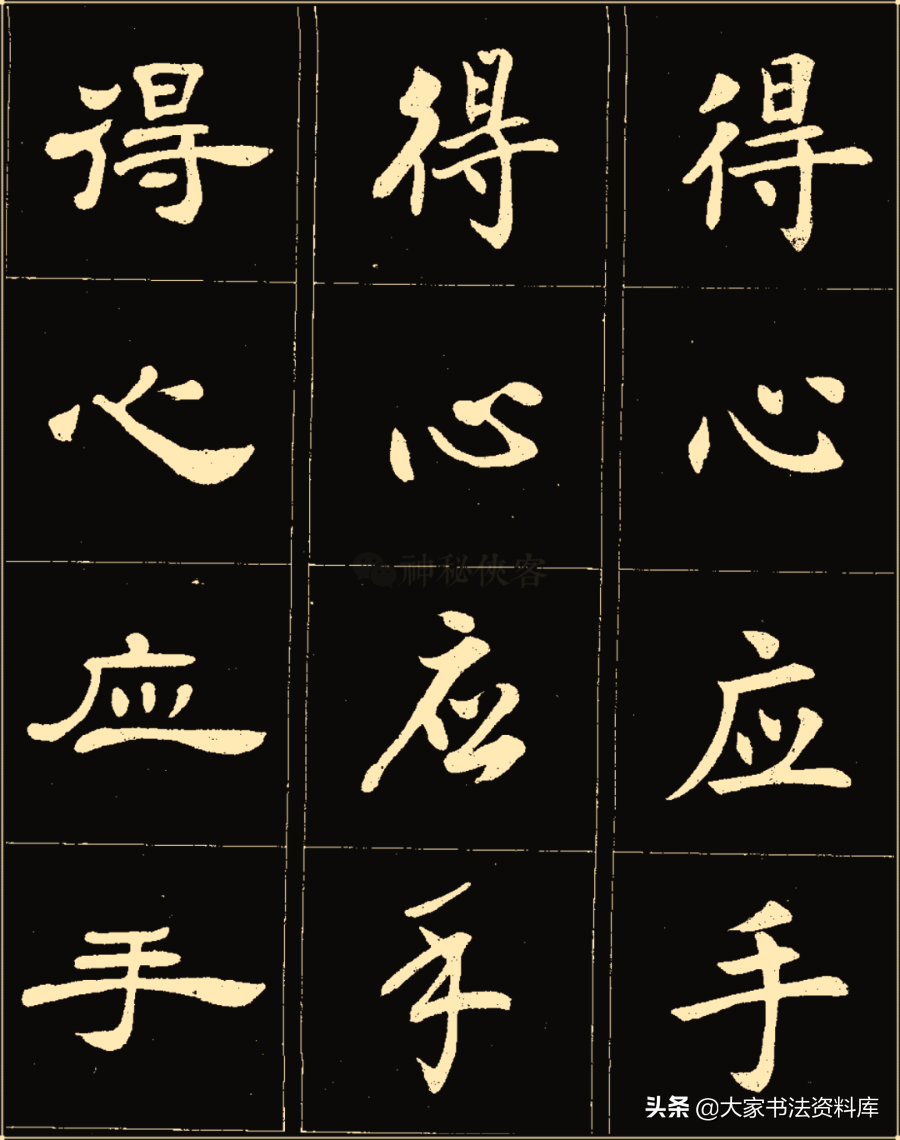 得心应手
得心应手
得心应手
神秘侠客
头条 @大家书法资料库